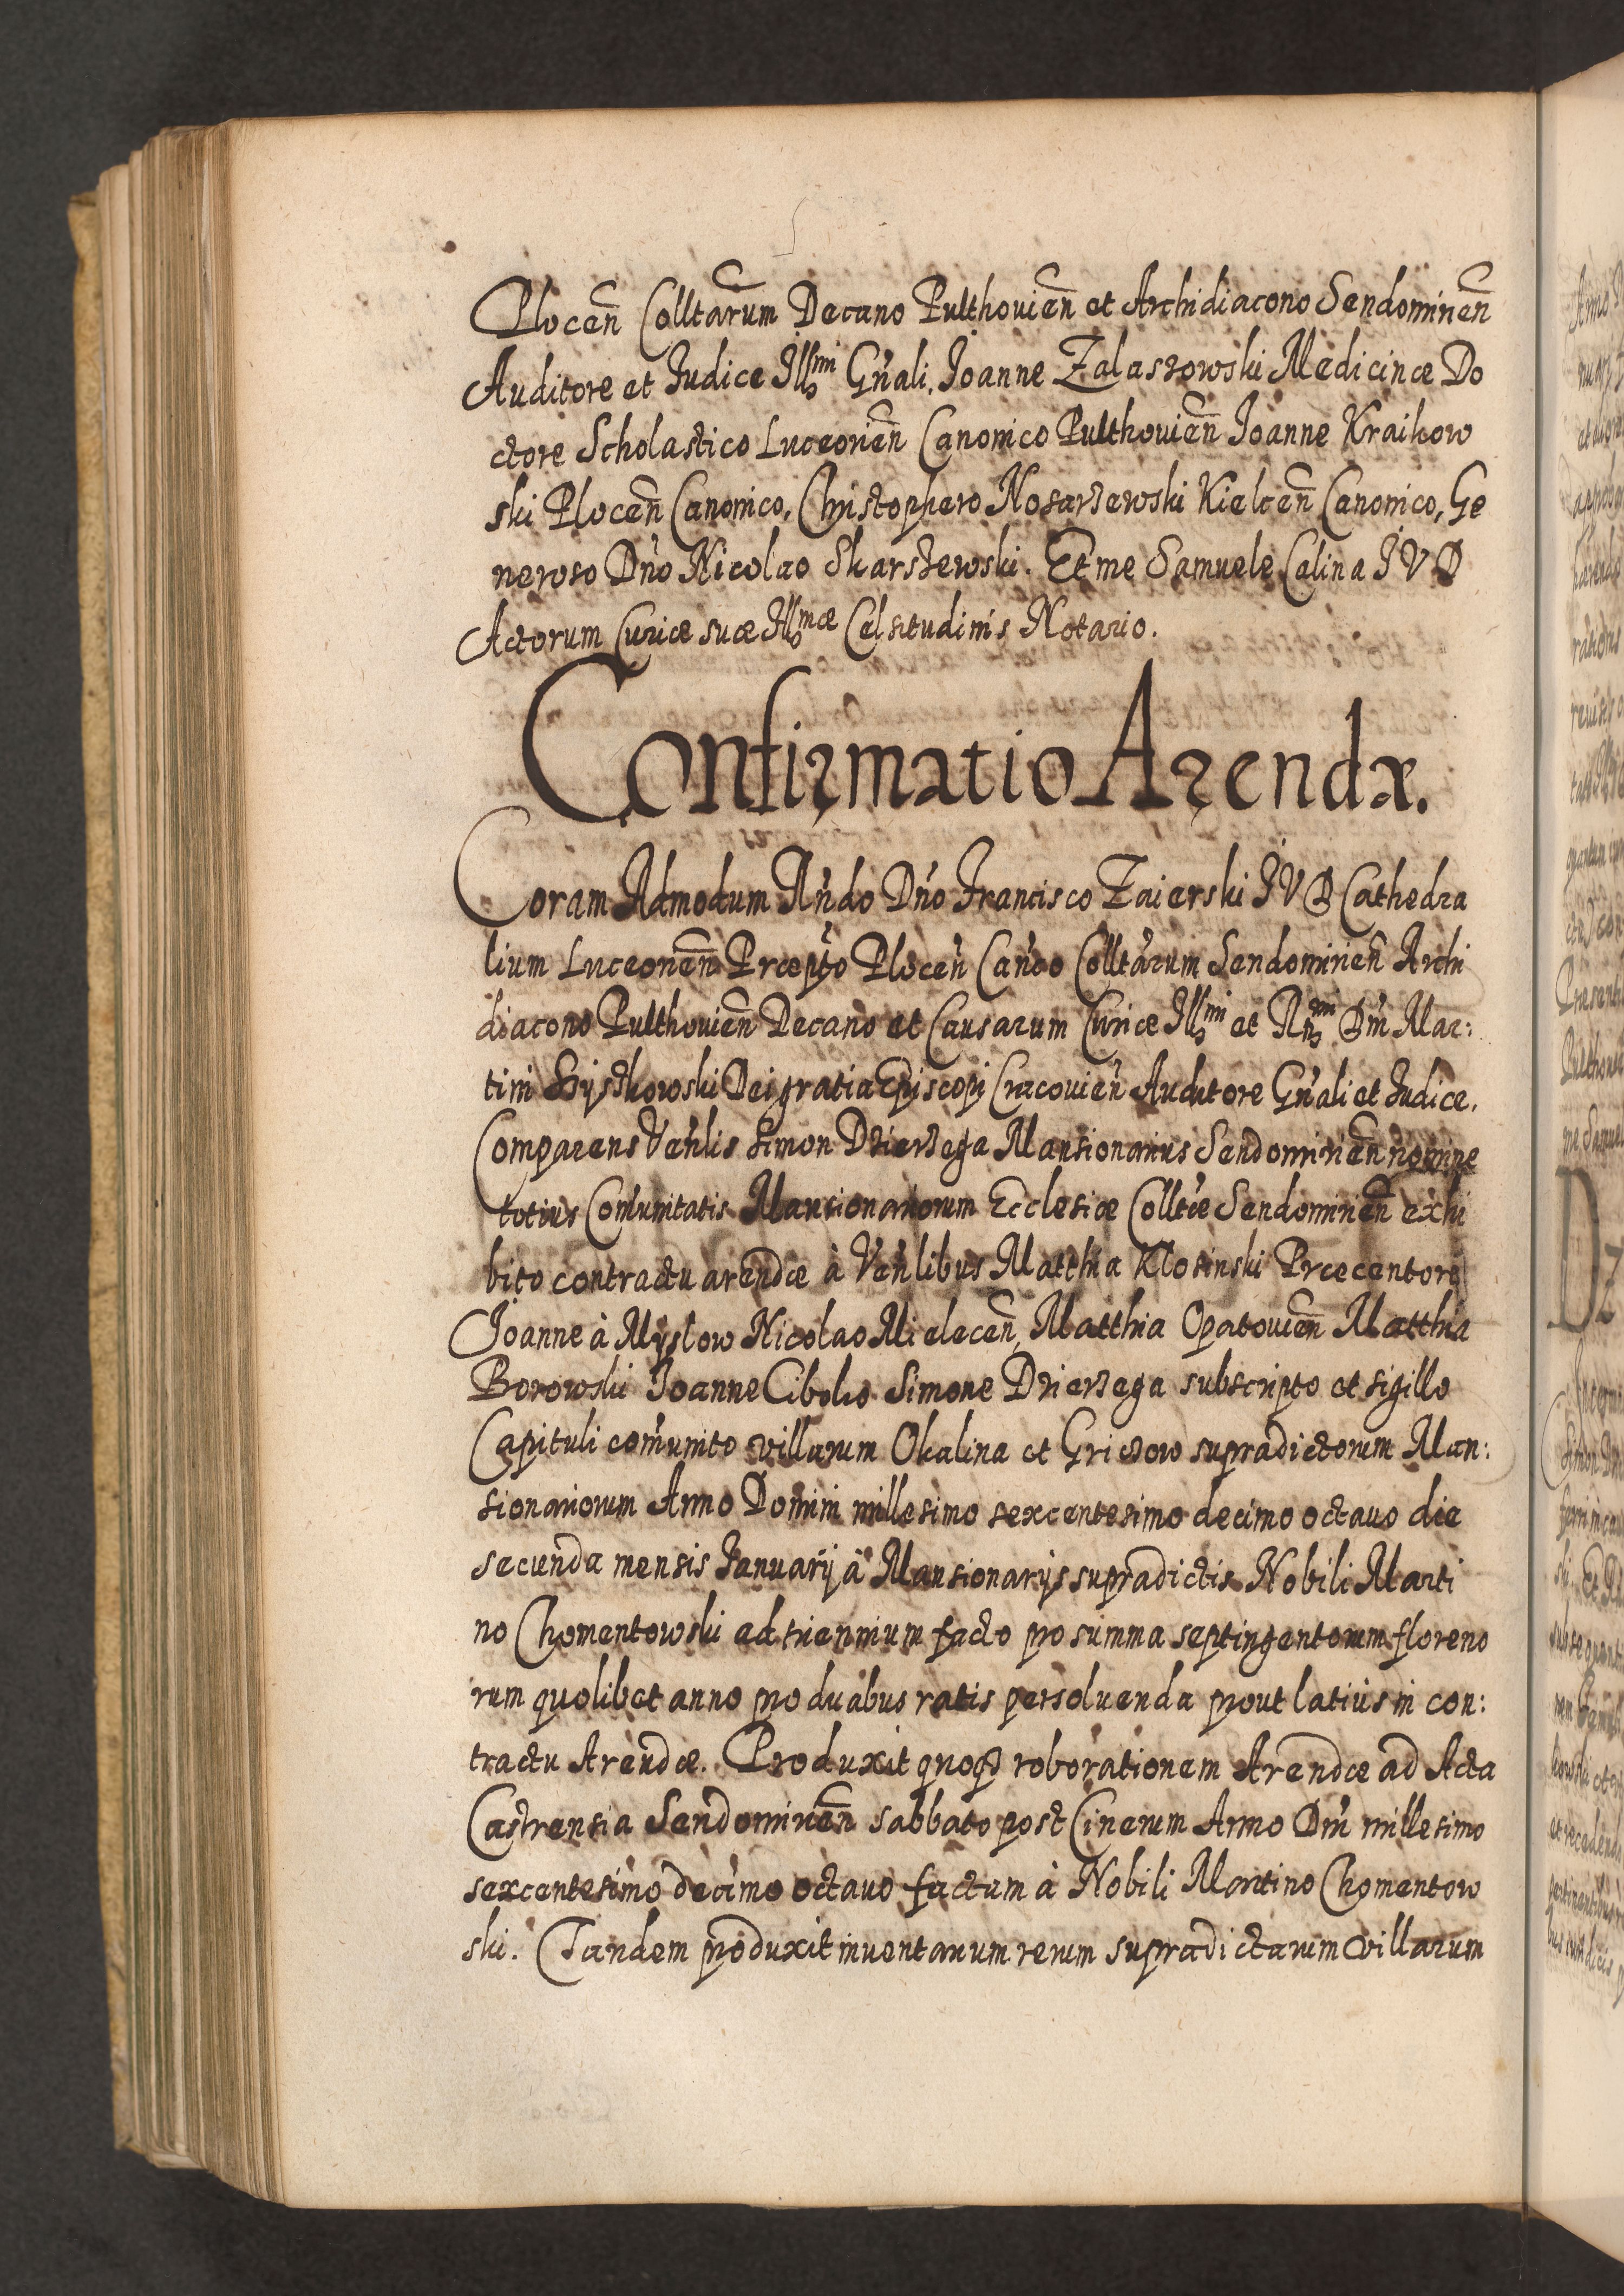 Plocen̄ Colltarum Decano Pulthouien̄ et Archidiacono Sendomirien̄
Auditore et Iudice Ill͠mi Gn̄ali. Joanne Zalaszowski Medicinæ Do
ctore Scholastico Luceorien̄ Canonico Pulthouien̄ Joanne Kraikow
ski Plocen̄ Canonico, Christophero Nosarzewski Kielcen̄ Canonico, Ge
neroso Dn̄o Nicolao Skarszewski. Et me Samuele Calina I V D
Actorum Curiæ suæ Ill͠mæ Celsitudinis Notario.
Confirmatio Arendæ.
Coram Admodum Rn̄do Dn̄o Francisco Zaierski I V D Cathedra
lium Luceorien̄ Præpto Plocen̄ Can̄co Colltarum Sendomirien̄ Archi
diacono Pulthouien̄ Decano et Causarum Curiæ Ill͠mi et Rn͠mi Dn̄i Mar:
tini Szyszkowski Dei gratia Episcopi Cracouien̄ Auditore Gn̄ali et Iudice.
Comparens Ven̄lis Simon Dzierzega Mansionarius Sendomirien̄ nomine
totius Com̄unitatis Mansionariorum Ecclesiæ Colltæ Sendomirien̄ exhi
bito contractu arendæ à Ven̄libus Matthia Klosinski Præcentore
Joanne à Myslow Nicolao Mielecen̄, Matthia Opatouien̄ Matthia
Borowski Joanne Cibolio Simone Dzierzega subscripto et sigillo
Capituli com̄unito villarum Okalina et Griczow supradictorum Man:
sionariorum Anno Domini millesimo sexcentesimo decimo octauo die
secunda mensis Ianuarij à Mansionarijs supradictis Nobili Marti
no Chomentowski ad triennium facto pro summa septingentorum floreno
rum quolibet anno pro duabus ratis persoluenda prout latius in con:
tractu Arendæ. Produxit quoqz roborationem Arendæ ad Acta
Castrensia Sendomirien̄ sabbato post Cinerum Anno Dn̄i millesimo
sexcentesimo decimo octauo factam à Nobili Martino Chomentow
ski. Tandem produxit inuentarium rerum supradictarum villarum